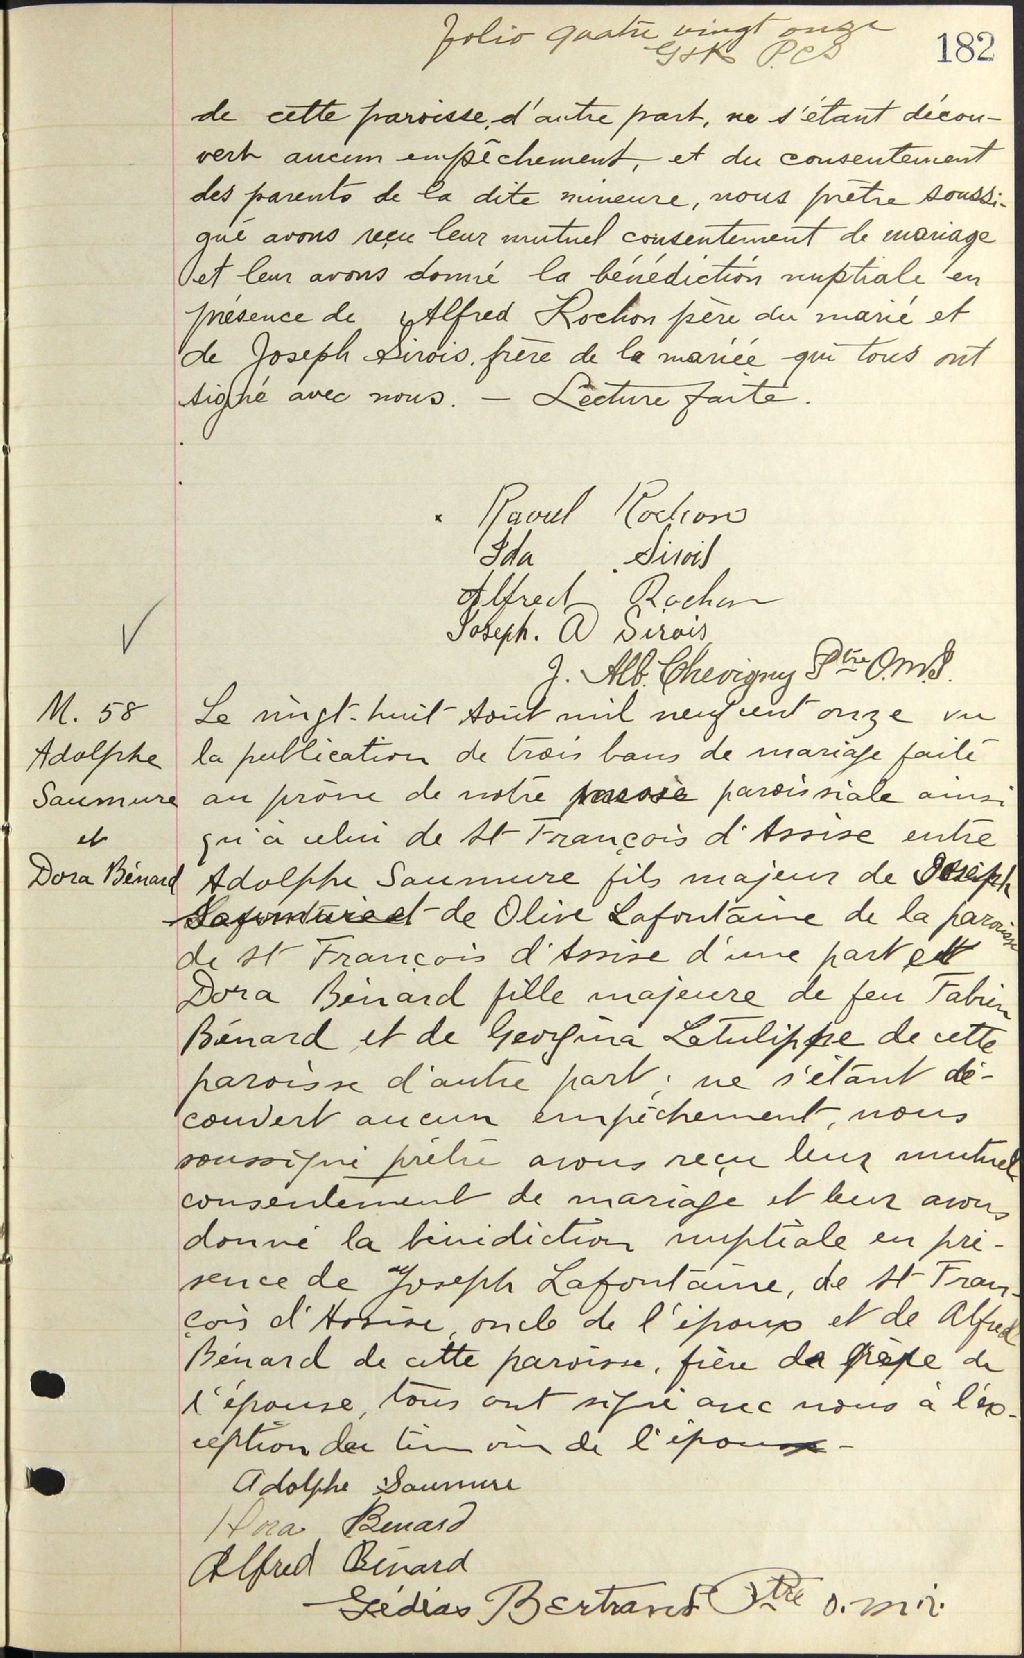 folio quatre vingt onze
G&K P.C.S
182
de cette paroisse, d'autre part, ne s'étant décou-
vert aucun empêchement, et du consentement
des parents de la dite mineure, nous prêtre soussi-
gné avons reçu leur mutuel consentement de mariage
et leur avons donné la bénédiction nuptiale en
présence de Alfred Rochon père du marié et
de Joseph Sirois, frère de la mariée qui tous ont
signé avec nous. — Lecture faite.
Raoul Rochon
Ida Sirois
Alfred Rochon
Joseph. A Sirois
J. Alb. Chevigny Ptre O.M.I.
M. 58
Adolphe
Saumure
et
Dora Bénard
Le vingt-huit Août mil neuf cent onze vu
la publication de trois bans de mariage faite
au prône de notre paroissiale ainsi
qu'à celui de St François d'Assise entre
Adolphe Saumure fils majeur de Joseph
Lafontaine et de Olive Lafontaine de la paroisse
de St François d'Assise d'une part et
Dora Bénard fille majeure de feu Fabien
Bénard et de Georgina Latulippe de cette
paroisse d'autre part; ne s'étant dé-
couvert aucun empêchement, nous
soussigné prêtre avons reçu leur mutuel
consentement de mariage et leur avons
donné la bénédiction nuptiale en pré-
sence de Joseph Lafontaine, de St Fran-
çois d'Assise, oncle de l'époux et de Alfred
Bénard de cette paroisse, frère de
l'épouse, tous ont signé avec nous à l'ex-
ception du témoin de l'époux -
Adolphe Saumure
Dora Benard
Alfred Bénard
Gédéas Bertrand Ptre o.m.i.